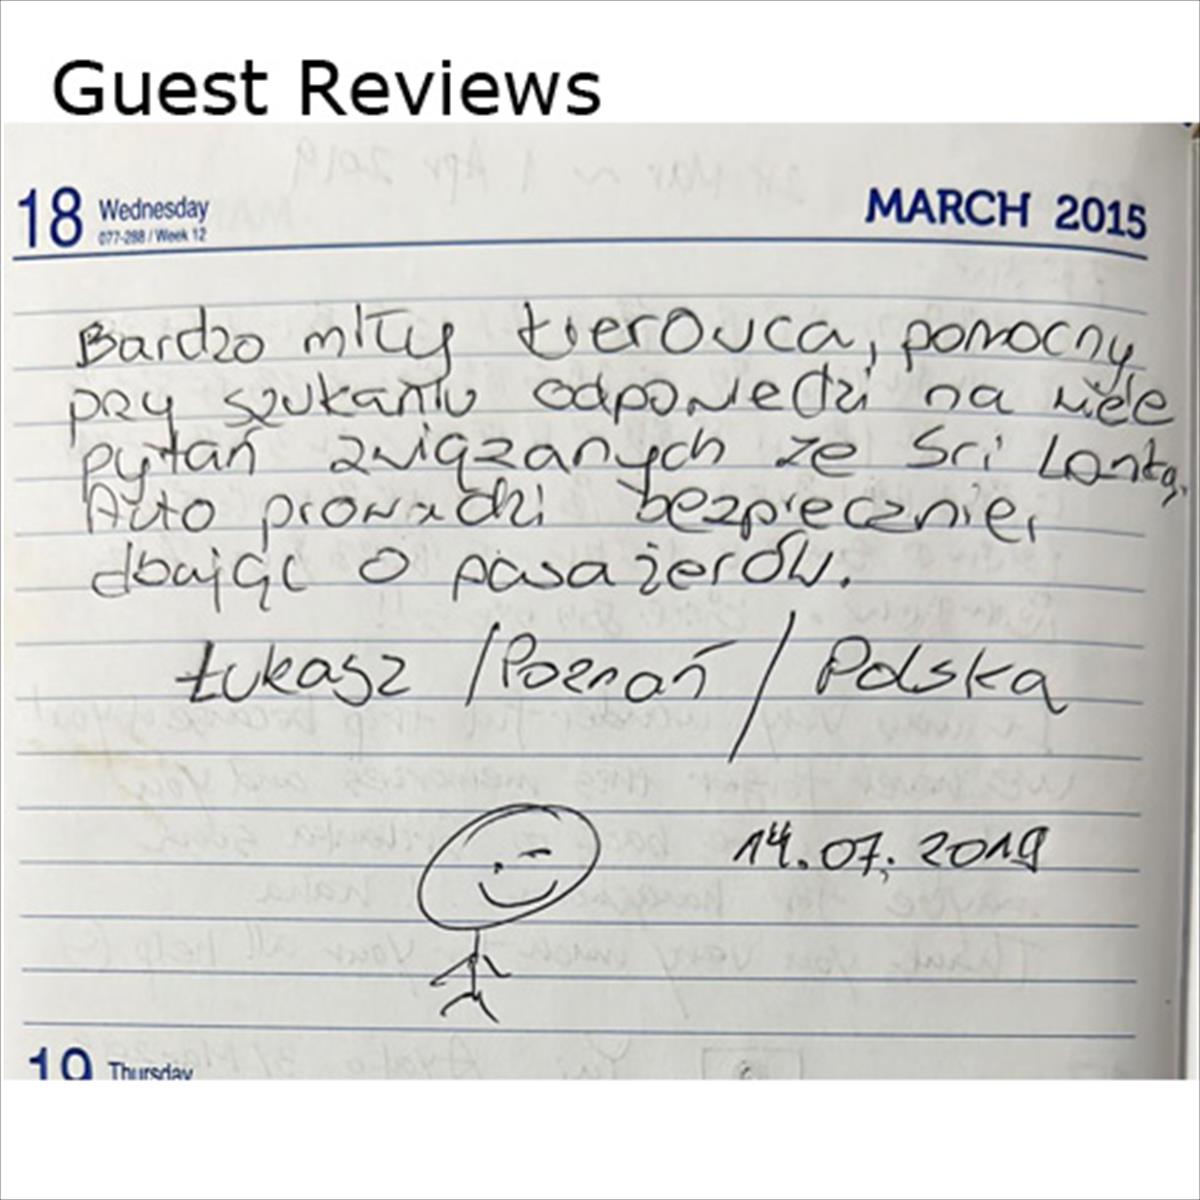 Guest Reviews
18 Wednesday MARCH 2015
077-288 / Week 12
Bardzo miły kierowca, pomocny
przy szukaniu odpowiedzi na wiele
pytań związanych ze Sri Lanką.
Auto prowadzi bezpiecznie,
dbając o pasażerów.
Łukasz / Poznań / Polska
14.07.2019
19 Thursday